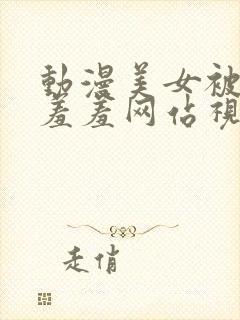 動漫美女被
羞羞网佔視
走俏